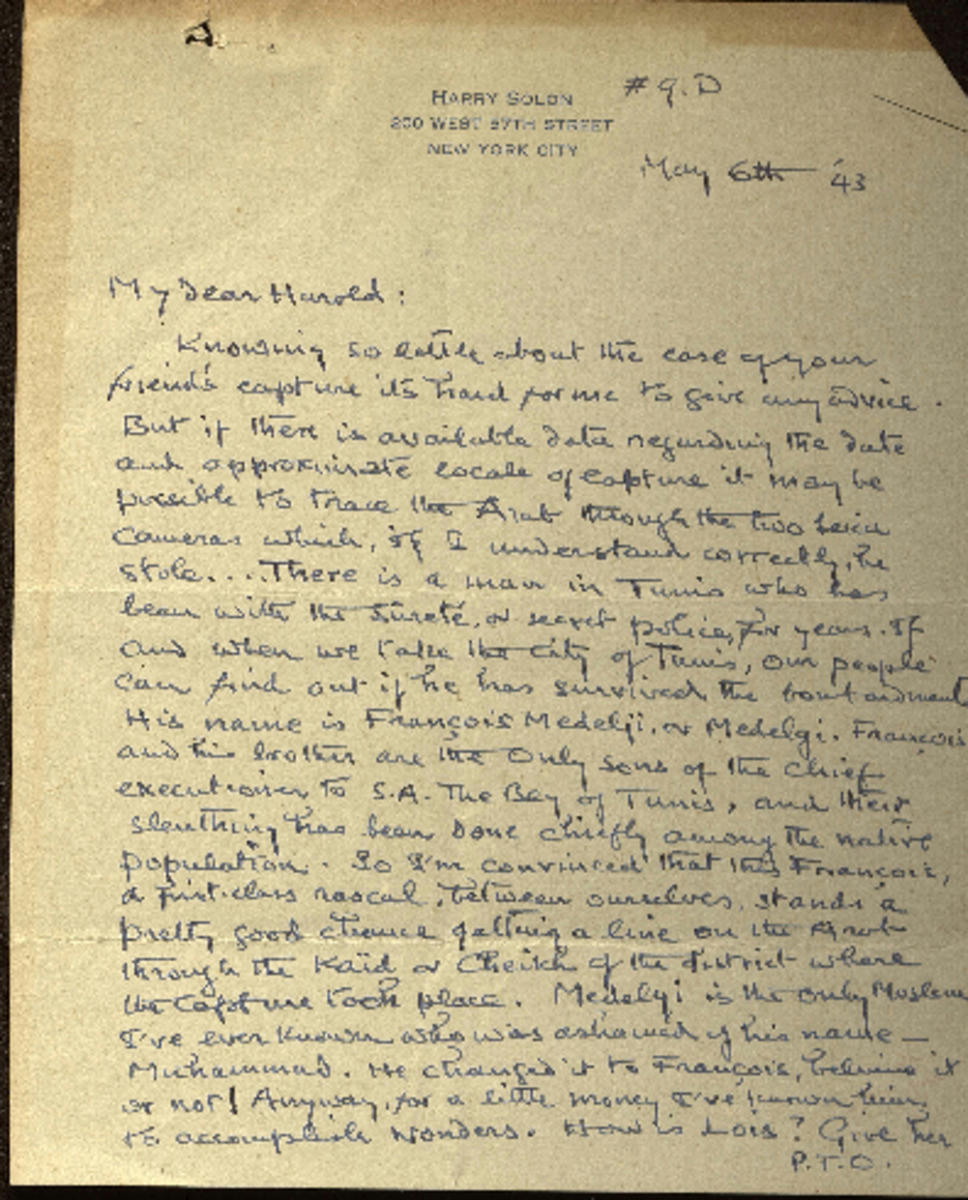 HARRY SOLON
200 WEST 57TH STREET
NEW YORK CITY
# 9.D
May 6th '43
My Dear Harold:
Knowing so little about the case of your
friend's capture it's hard for me to give any advice.
But if there is available data regarding the date
and approximate locale of capture it may be
possible to trace the Arab through the two
cameras which, if I understand correctly, he
stole.... There is a man in Tunis who has
been with the Sûreté, or secret police, for years. If
and when we take the city of Tunis, our people
can find out if he has survived the bombardment
His name is François Medelji, or Medelgi. François
and his brother are the only sons of the chief
executioner to S.A. The Bey of Tunis, and their
sleuthing has been done chiefly among the native
population. So I'm convinced that this François,
a first-class rascal, between ourselves, stands a
pretty good chance of getting a line on the Arab
through the Kaïd or Cheikh of the district where
the capture took place. Medelgi is the only Moslem
I've ever known who was ashamed of his name —
Muhammad. He changed it to François, believe it
or not! Anyway, for a little money I've known him
to accomplish wonders. How is Lois? Give her
P.T.O.